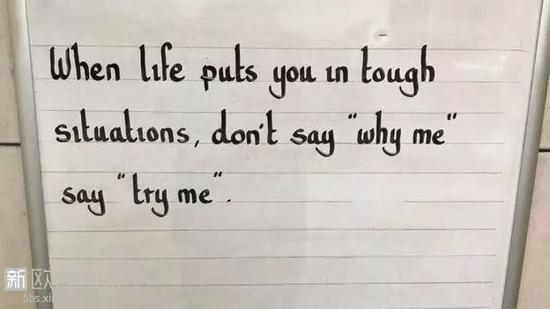 When life puts you in tough
situations, don't say "why me"
say "try me".
新欧
bbs.xi